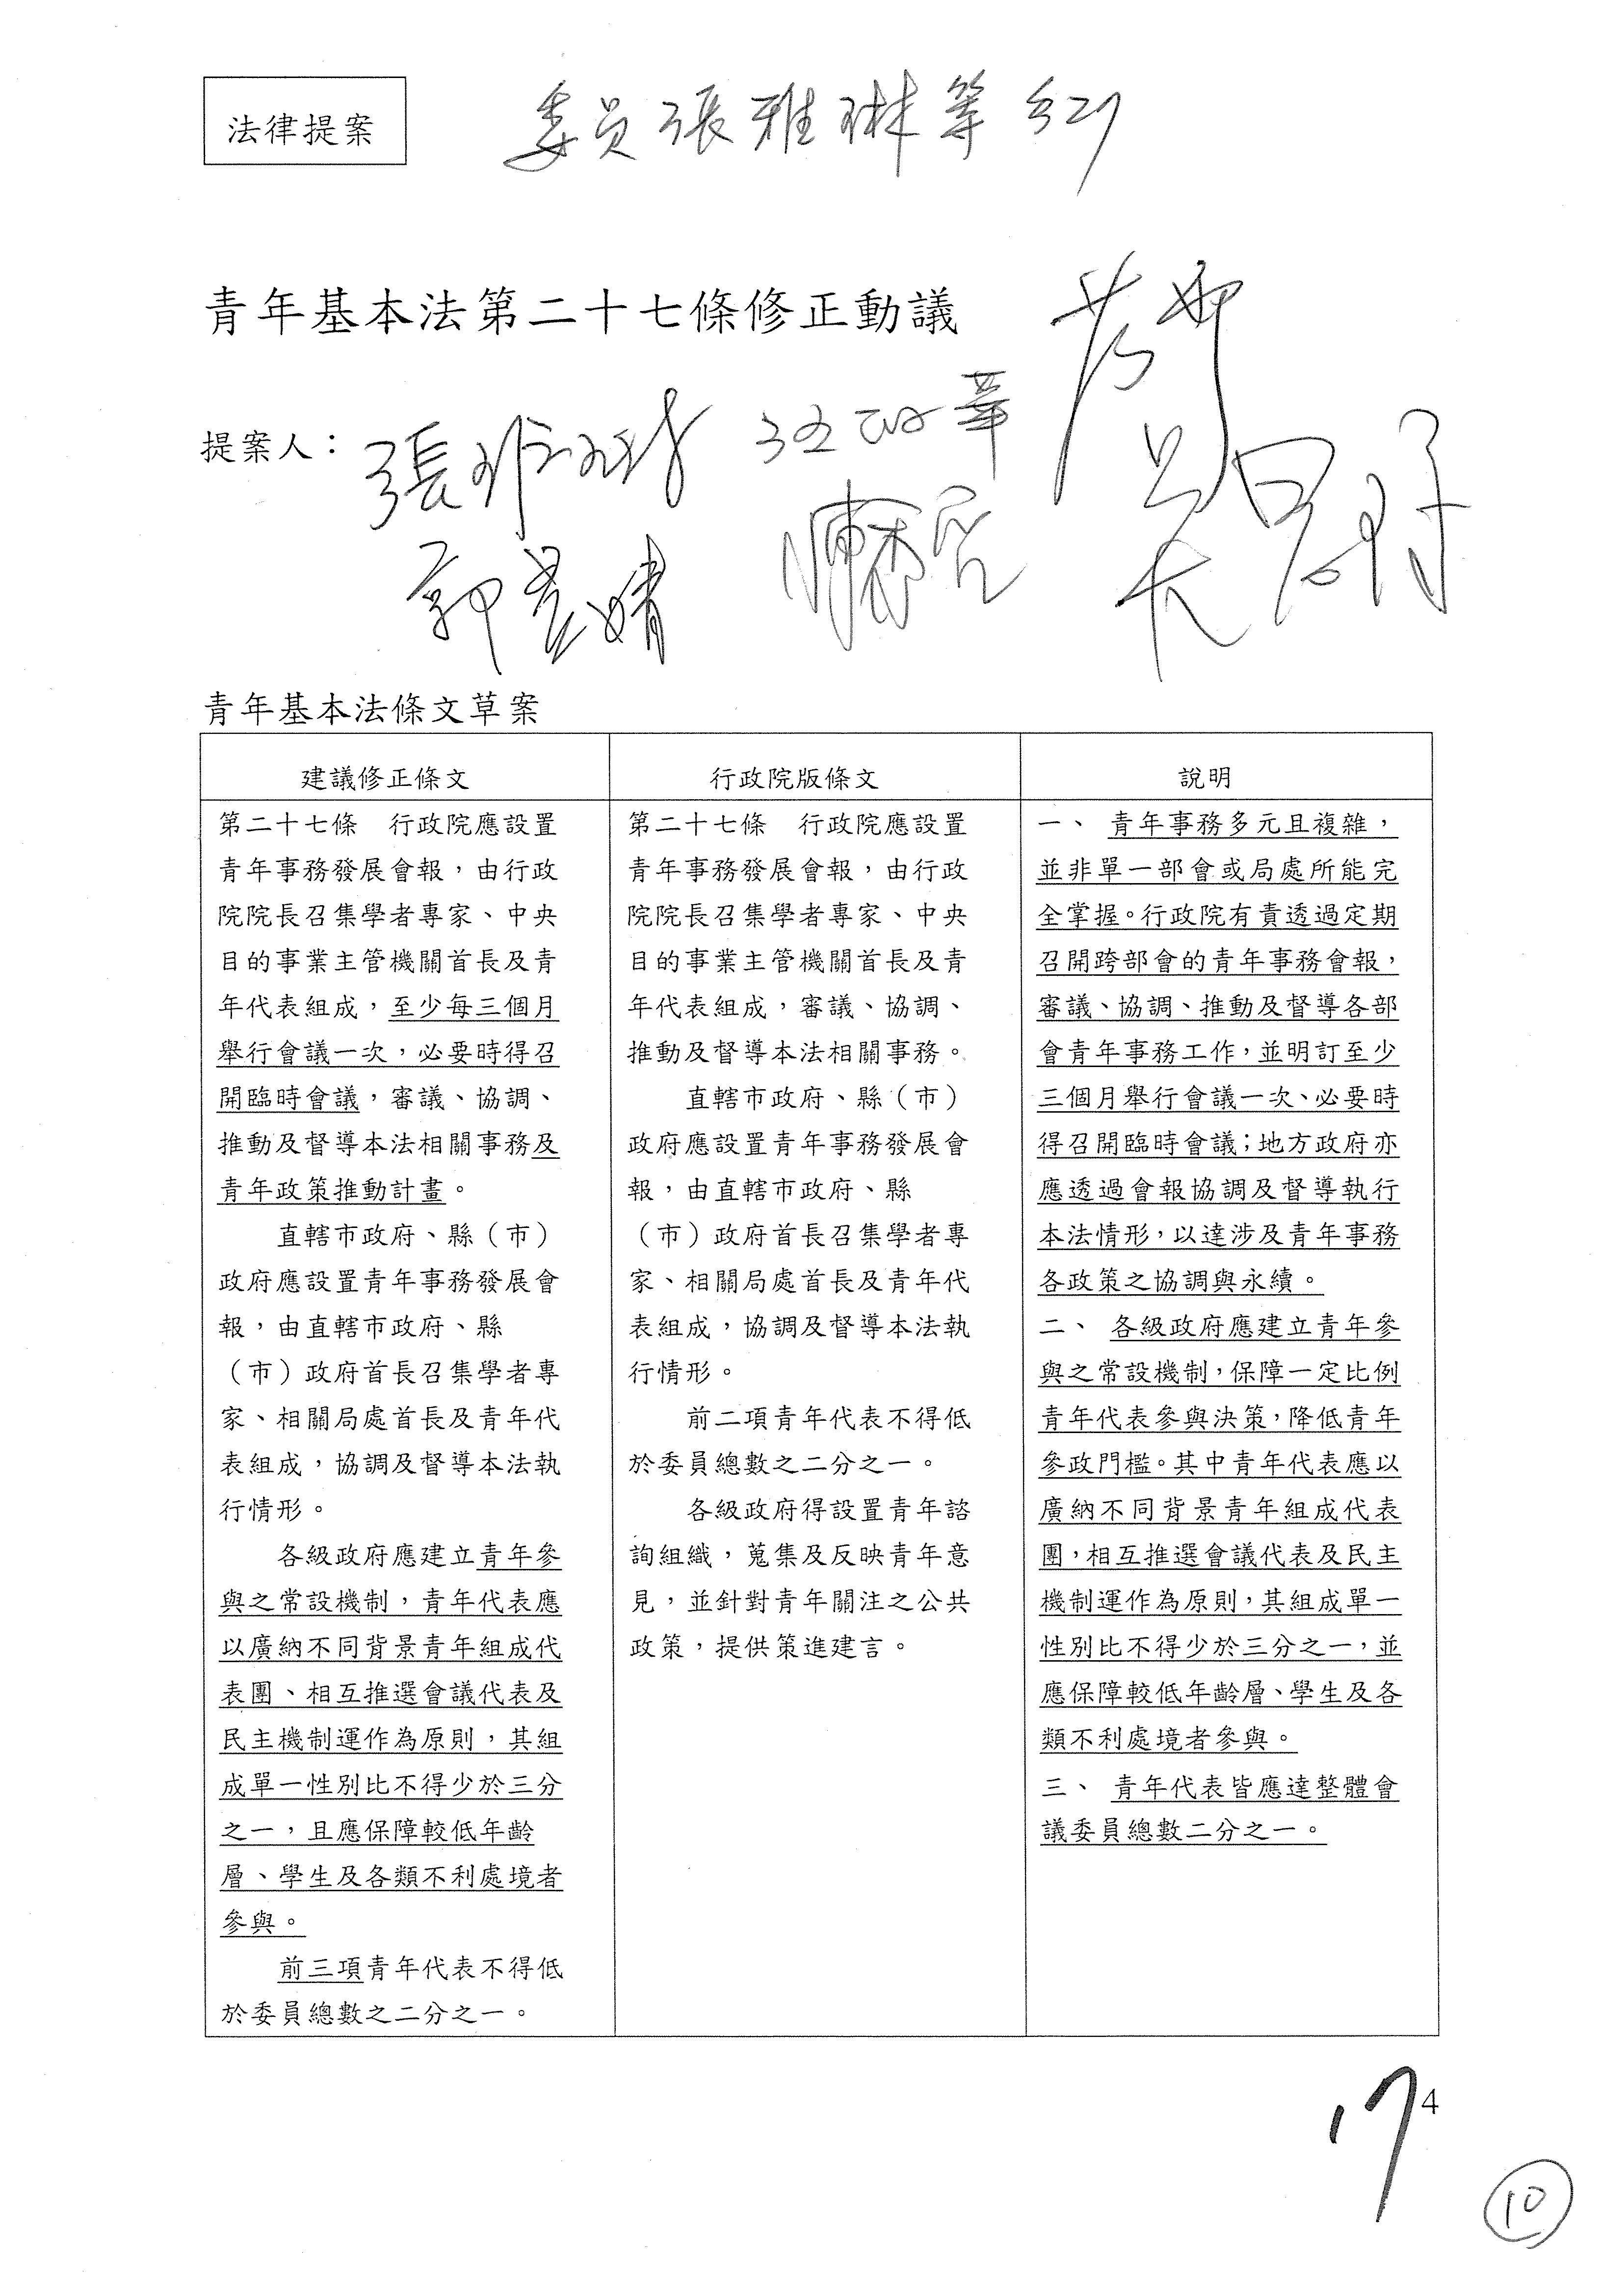 法律提案
委員張雅琳等
青年基本法第二十七條修正動議
提案人：
張雅琳
郭昱晴
青年基本法條文草案
建議修正條文
第二十七條　行政院應設置
青年事務發展會報，由行政
院院長召集學者專家、中央
目的事業主管機關首長及青
年代表組成，至少每三個月
舉行會議一次，必要時得召
開臨時會議，審議、協調、
推動及督導本法相關事務及
青年政策推動計畫。
直轄市政府、縣（市）
政府應設置青年事務發展會
報，由直轄市政府、縣
（市）政府首長召集學者專
家、相關局處首長及青年代
表組成，協調及督導本法執
行情形。
各級政府應建立青年參
與之常設機制，青年代表應
以廣納不同背景青年組成代
表團、相互推選會議代表及
民主機制運作為原則，其組
成單一性別比不得少於三分
之一，且應保障較低年齡
層、學生及各類不利處境者
參與。
前三項青年代表不得低
於委員總數之二分之一。
行政院版條文
第二十七條　行政院應設置
青年事務發展會報，由行政
院院長召集學者專家、中央
目的事業主管機關首長及青
年代表組成，審議、協調、
推動及督導本法相關事務。
直轄市政府、縣（市）
政府應設置青年事務發展會
報，由直轄市政府、縣
（市）政府首長召集學者專
家、相關局處首長及青年代
表組成，協調及督導本法執
行情形。
前二項青年代表不得低
於委員總數之二分之一。
各級政府得設置青年諮
詢組織，蒐集及反映青年意
見，並針對青年關注之公共
政策，提供策進建言。
說明
一、 青年事務多元且複雜，
並非單一部會或局處所能完
全掌握。行政院有責透過定期
召開跨部會的青年事務會報，
審議、協調、推動及督導各部
會青年事務工作，並明訂至少
三個月舉行會議一次、必要時
得召開臨時會議；地方政府亦
應透過會報協調及督導執行
本法情形，以達涉及青年事務
各政策之協調與永續。
二、 各級政府應建立青年參
與之常設機制，保障一定比例
青年代表參與決策，降低青年
參政門檻。其中青年代表應以
廣納不同背景青年組成代表
團，相互推選會議代表及民主
機制運作為原則，其組成單一
性別比不得少於三分之一，並
應保障較低年齡層、學生及各
類不利處境者參與。
三、 青年代表皆應達整體會
議委員總數二分之一。
4
17
10